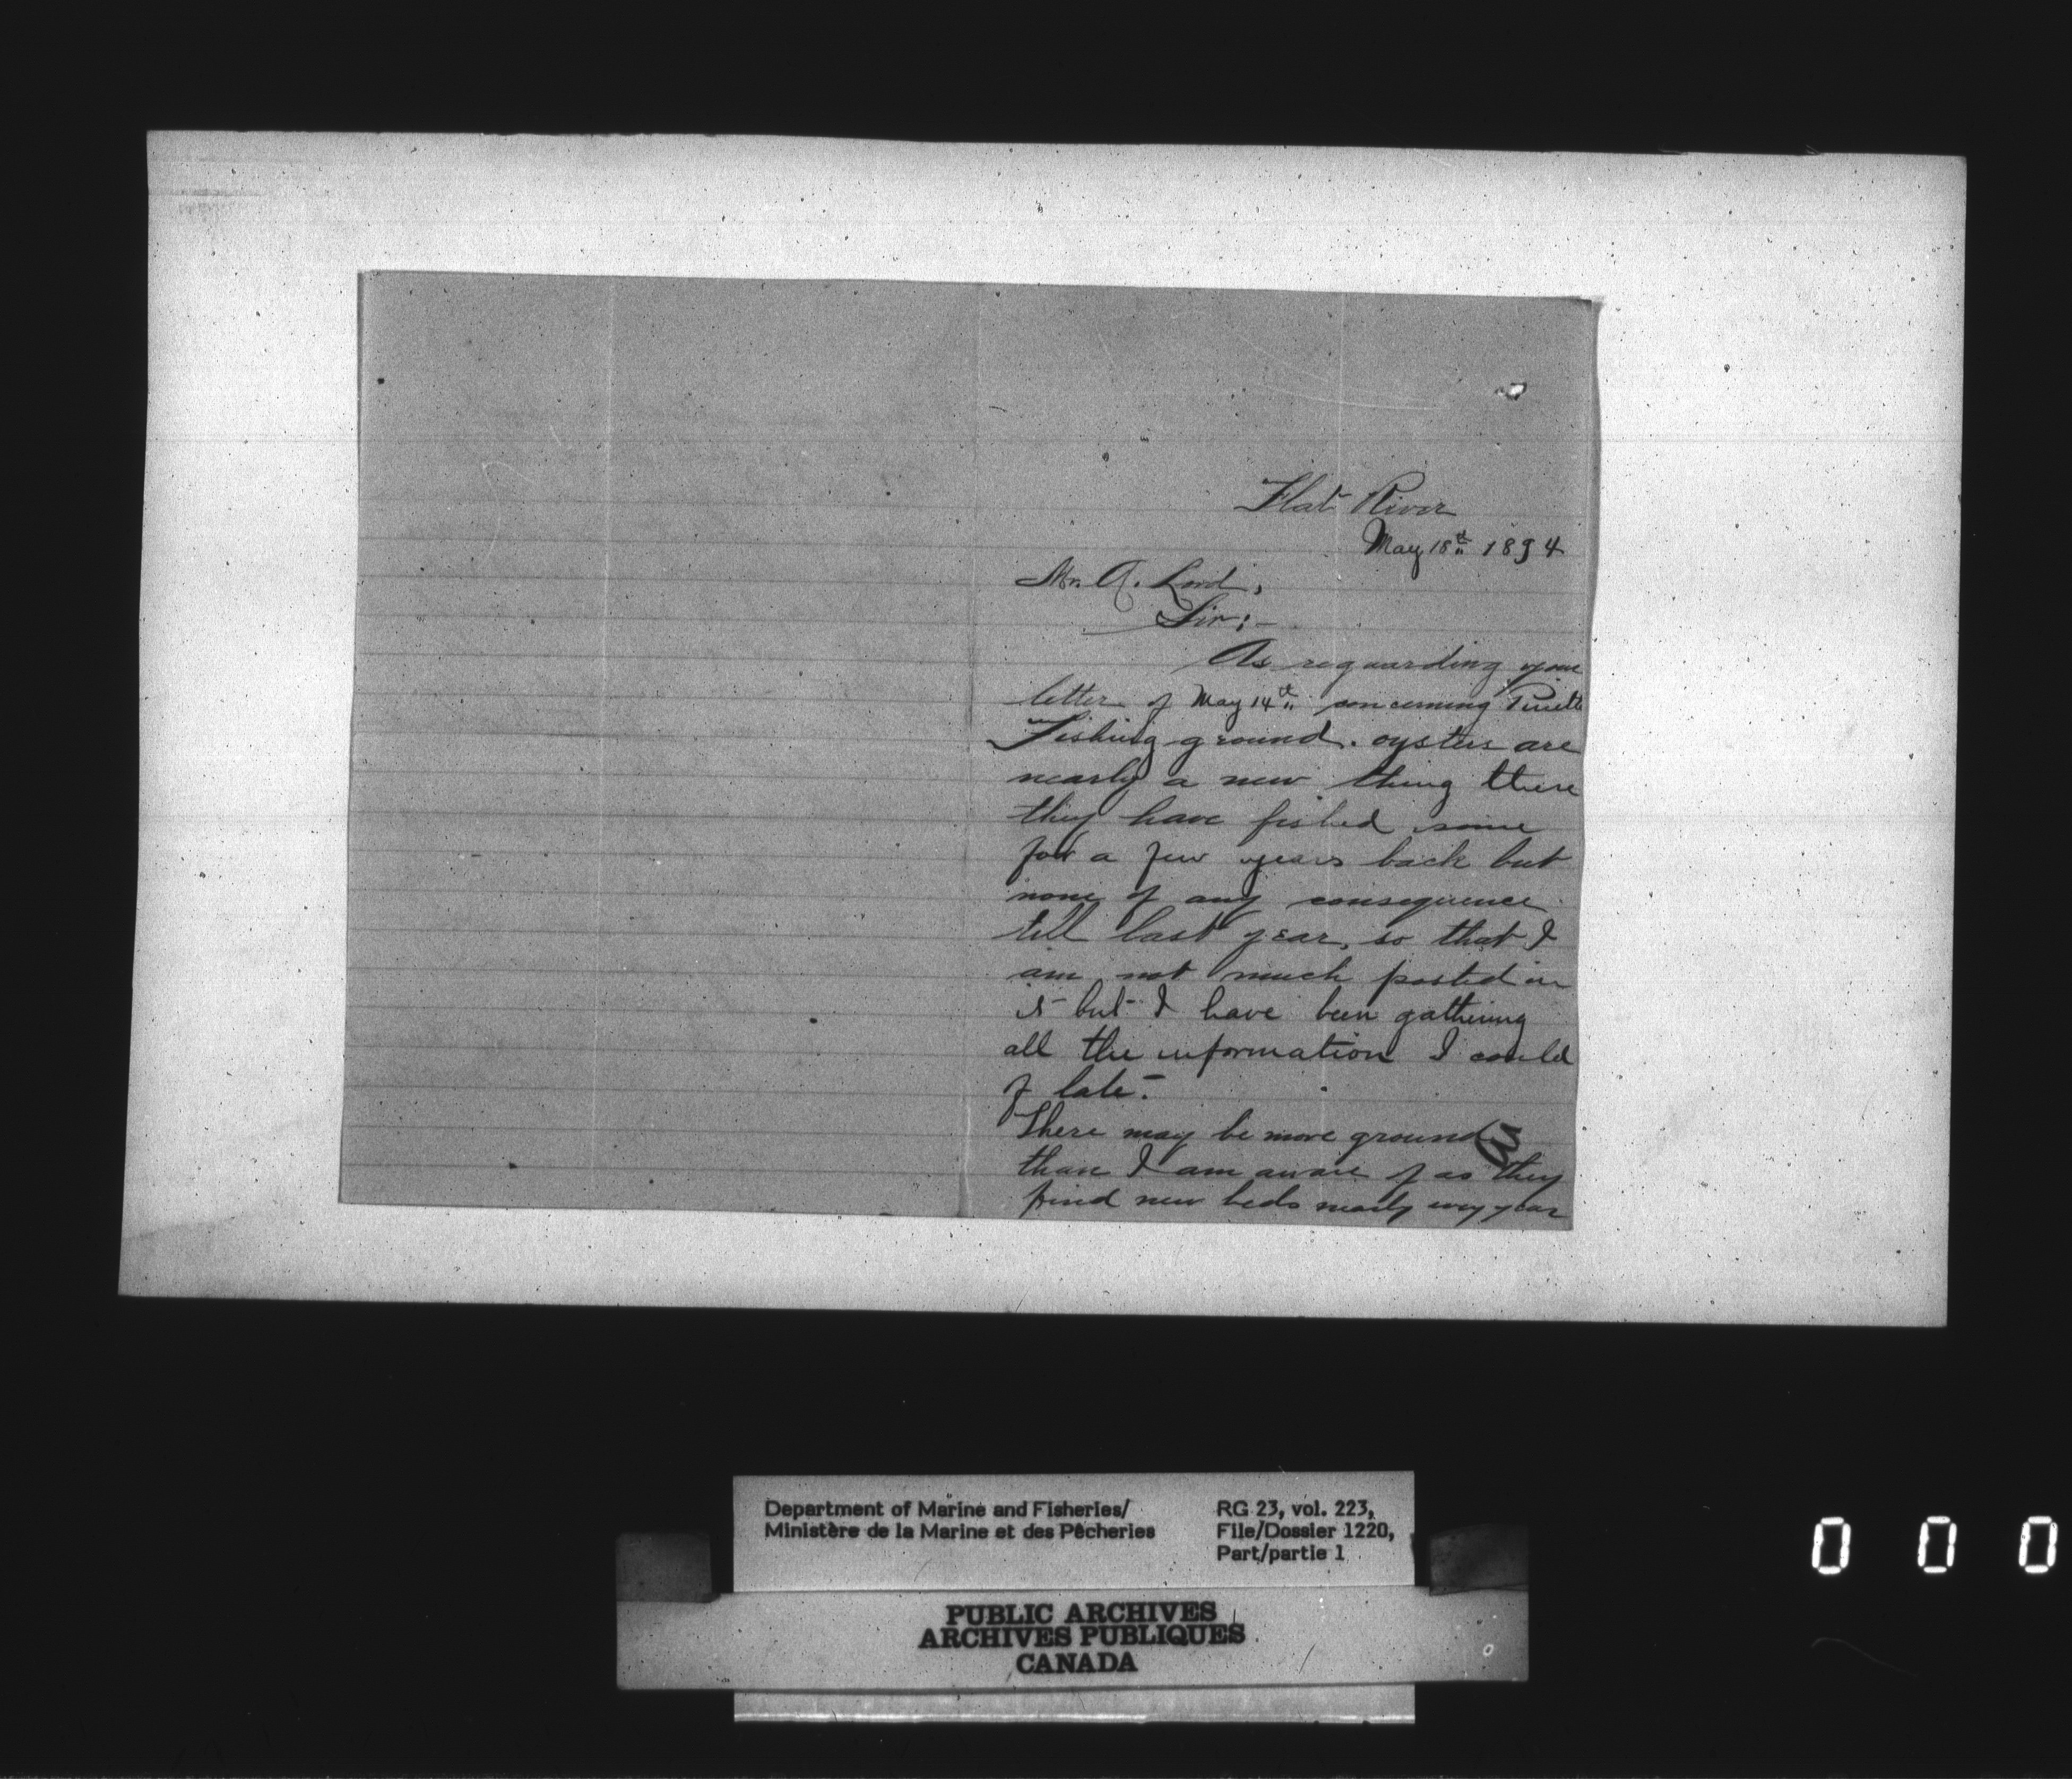 Flat River
May 18th 1894
Mr. A. Lord,
Sir:-
As reguarding your
letter of May 14th concerning Pinette
Fishing ground. oysters are
nearly a new thing there
they have fished some
for a few years back but
none of any consequence
till last year, so that I
am not much posted in
it but I have been gathering
all the information I could
of late.
There may be more ground
than I am aware of as they
find new beds nearly evry year
Department of Marine and Fisheries/
Ministère de la Marine et des Pêcheries
RG 23, vol. 223,
File/Dossier 1220,
Part/partie 1
PUBLIC ARCHIVES
ARCHIVES PUBLIQUES
CANADA
0 0 0